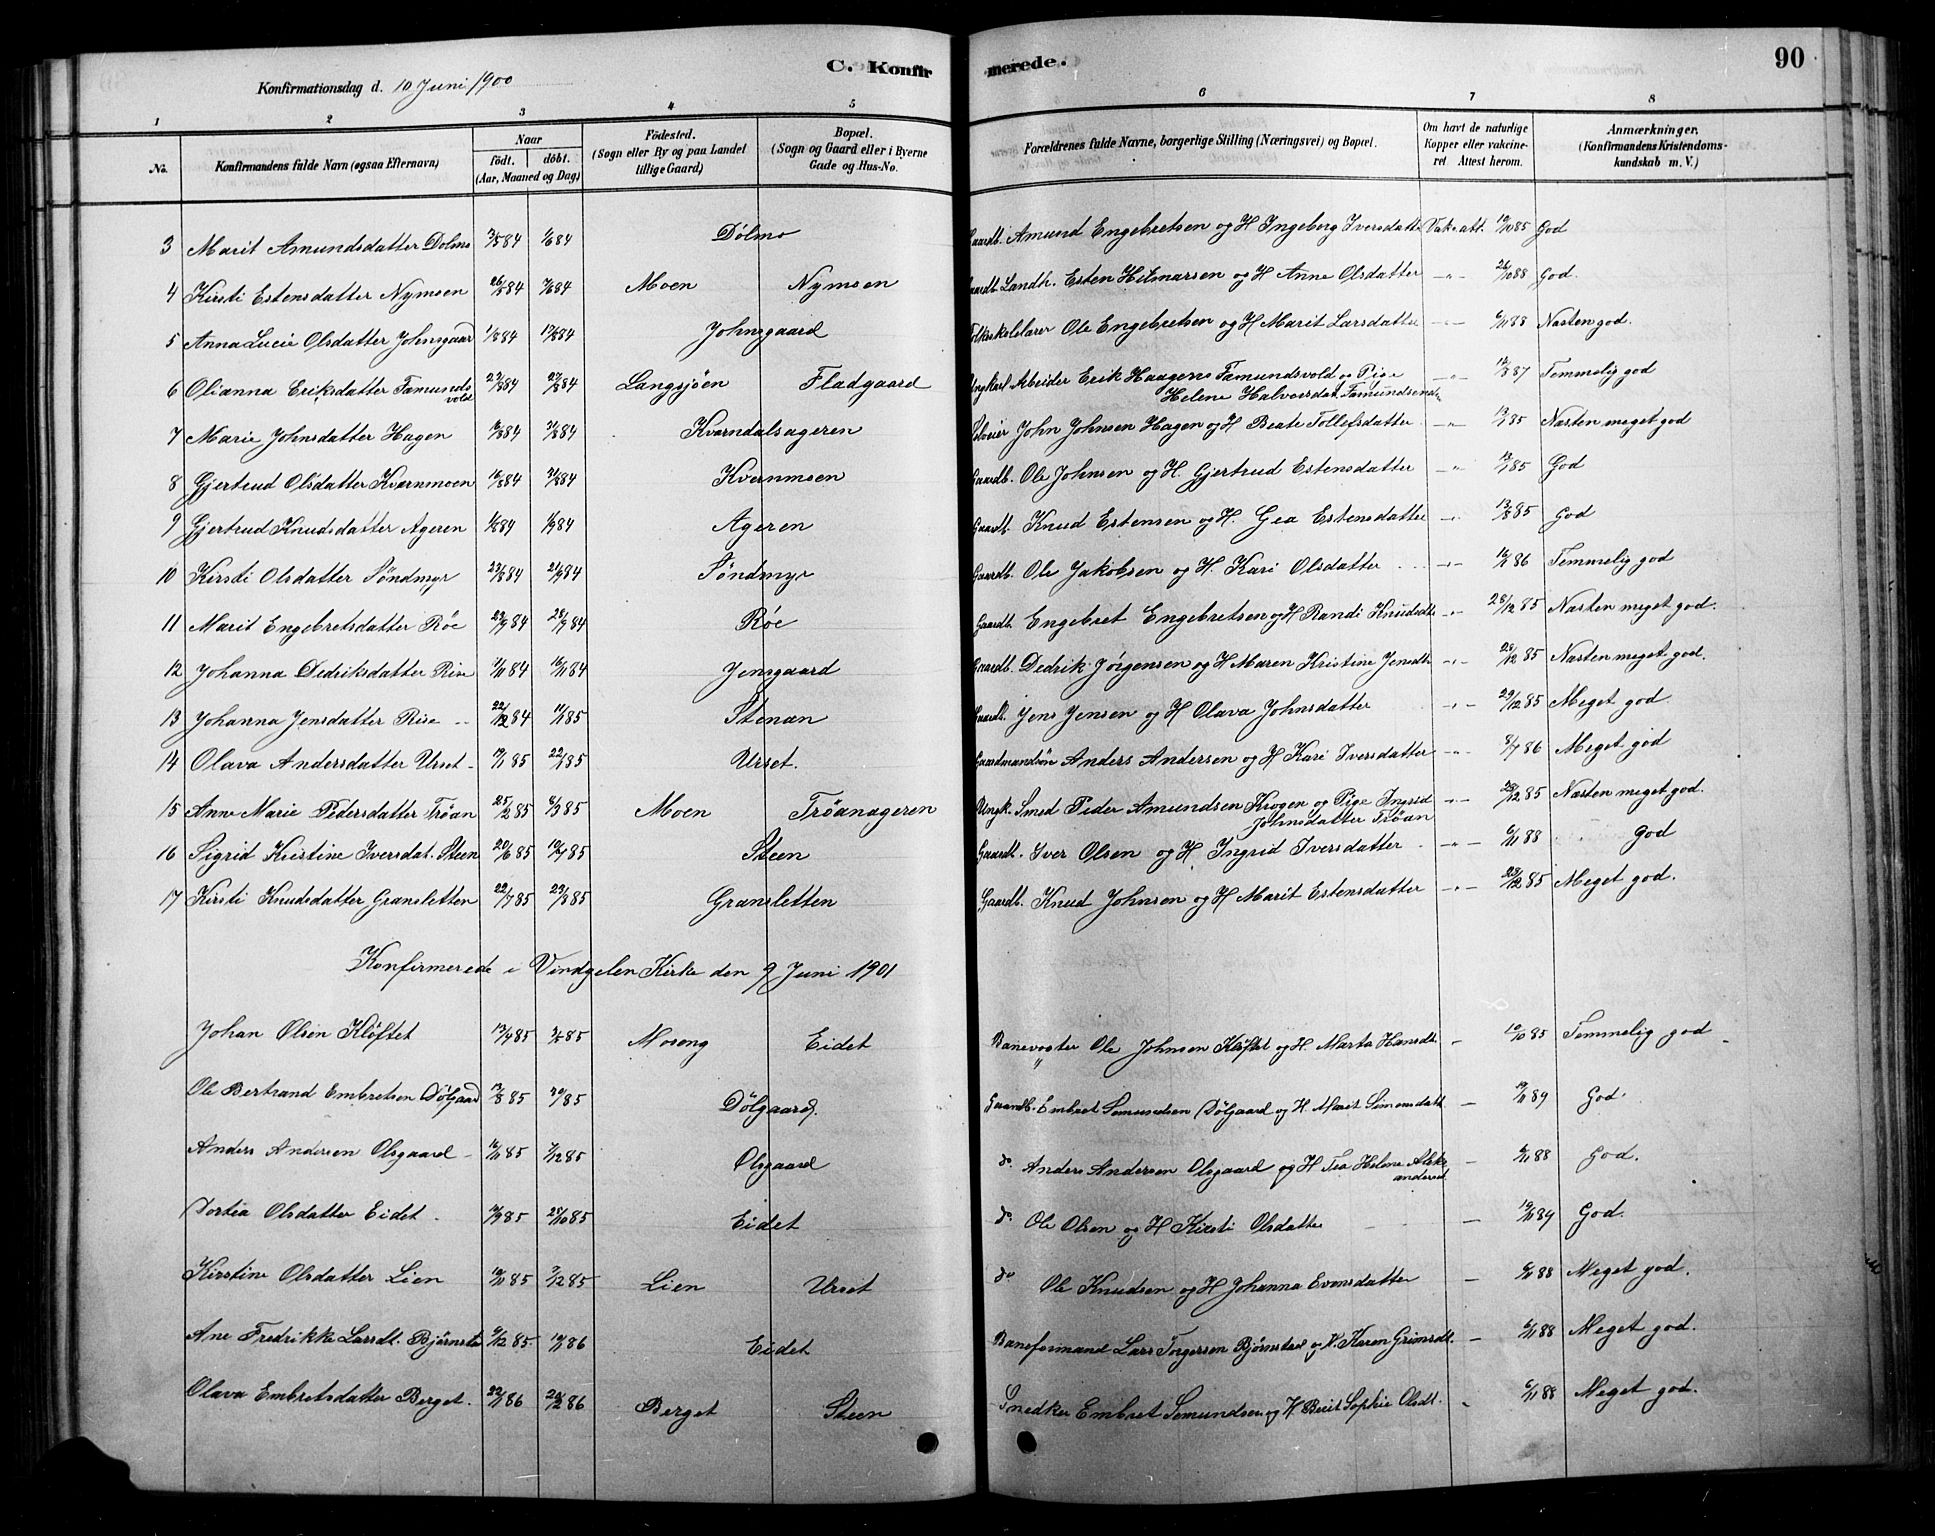 90
C. Konfirmerede.
Konfirmationsdag d. 10 Juni 1900
1 2 3 4 5 6 7 8
No. Konfirmandens fulde Navn (ogsaa Efternavn) Naar födt. döbt. (Aar, Maaned og Dag) Födested. (Sogn eller By og paa Landet tillige Gaard) Bopæl. (Sogn og Gaard eller i Byerne Gade og Hus-No. Forældrenes fulde Navne, borgerlige Stilling (Næringsvei) og Bopæl. Om havt de naturlige Kopper eller vakcineret Attest herom. Anmærkninger. (Konfirmandens Kristendomskundskab m. V.)
3 Marit Amundsdatter Dolmo Dölmo Gaardb. Amund Engebretsen og H Ingeborg Iversdatter Vak. att. 19/10 85 God
4 Kirsti Estensdatter Nymoen 26/5 84 Moen Nymoen Gaardb. Landh. Esten Hilmarsen og H Anne Olsdatter 26/10 88 God.
5 Anna Lucie Olsdatter Johnsgaard 1/8 84 17/8 84 Johnsgaard Folkeskolelærer Ole Engebretsen og H Marit Larsdatter 6/11 88 Næsten god.
6 Olianna Eriksdatter Famundsvold 27/8 84 Langsjöen Fladgaard Ungkarl Arbeider Erik Haagens Famundsvold og Pige Helene Halvorsdat. Famundsend 87 Temmelig god
7 Marie Johnsdatter Hagen 31/8 84 Kværndalsageren Selveier John Johnsen Hagen og H Beate Tollefsdatter 85 Næsten meget god
8 Gjertrud Olsdatter Kværnmoen 16/8 84 31/8 84 Kvernmoen Gaardb. Ole Johnsen og H. Gjertrud Estensdatter 85 God
9 Gjertrud Knudsdatter Ageren Ageren Gaardb. Knud Estensen og H. Gea Estensdatter 13/8 85 God
10 Kirsti Olsdatter Söndmyr 23/8 84 21/9 84 Söndmyr Gaardb. Ole Jakobsen og H. Kari Olsdatter 86 Temmelig god
11 Marit Engebretsdatter Röe 23/9 84 28/9 84 Röe Gaardb. Engebret Engebretsen og H Randi Knudsdtr 28/12 85 Næsten meget god.
12 Johanna Dedriksdatter Rise 16/11 84 Jensgaard Gaardb. Dedrik Jörgensen og H Maren Kristine Jensdtr 29/12 85 Næsten meget god.
13 Johanna Jensdatter Rise 22/12 84 11/1 85 Stenan Gaardb. Jens Jensen og H Olava Johnsdatter 29/12 85 Meget god
14 Olava Andersdatter Urset 19/1 85 22/1 85 Urset. Gaardmandsön Anders Andersen og H Kari Iversdatter 8/7 86 Meget god
15 Anne Marie Pedersdatter Tröan 25/2 85 8/3 85 Moen Tröanageren Ungk. Smed Peder Amundsen Krogen og Pige Ingrid Johnsdatter Tröan 29/12 85 Næsten meget god.
16 Sigrid Kristine Iversdat. Steen 20/6 85 19/7 85 Steen Gaardb. Iver Olsen og H. Ingrid Iversdatter 6/11 88 God
17 Kirsti Knudsdatter Gransletten 22/7 85 29/8 85 Gransletten Gaardb. Knud Johnsen og H Marit Estensdatter 29/12 85 Meget god.
Konfirmerede i Vindgelen Kirke den 9 Juni 1901
Johan Olsen Klöftet 13/4 85 Moseng Eidet Banevogter Ole Johnsen Klöftet og H. Marta Hansdtr 19/10 85 Temmelig god
Ole Bertrand Embretsen Dölgaard 85 Dölgaard. Gaardb. Embret Semundsen Dölgaard og H. Marit Simensdatt 89 God.
Anders Andersen Olsgaard 16/11 85 7/12 85 Olsgaard do. Anders Andersen Olsgaard og H Tea Helene Aleksandersd. 6/11 88 God.
Dortea Olsdatter Eidet 25/10 85 Eidet do. Ole Olsen og H Kirsti Olsdatter God.
Kirstine Olsdatter Lien 19/11 85 7/12 85 Lien Urset do Ole Knudsen og H Johanna Evensdatter 6/11 88 Meget god.
Ane Fredrikke Larsdt. Björnstad 6/12 85 Eidet Baneformand Lars Torgersen Björnstad og H. Karen Grimsdt. 6/11 88 Meget god.
Olava Embretsdatter Berget. 22/1 86 86 Berget Steen Snedker Embret Semundsen og H Berit Sophie Olsdt. 6/11 88 Meget god.